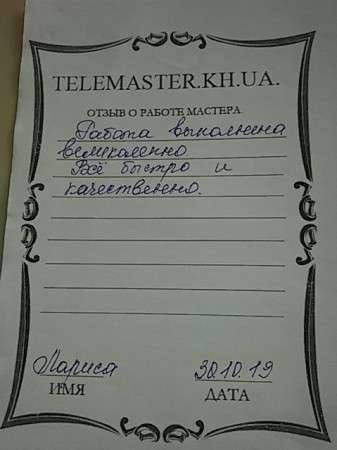 TELEMASTER.KH.UA.
ОТЗЫВ О РАБОТЕ МАСТЕРА.
Работа выполнена
великолепно
Всё быстро и
качественно.
Лариса 30.10.19
ИМЯ ДАТА